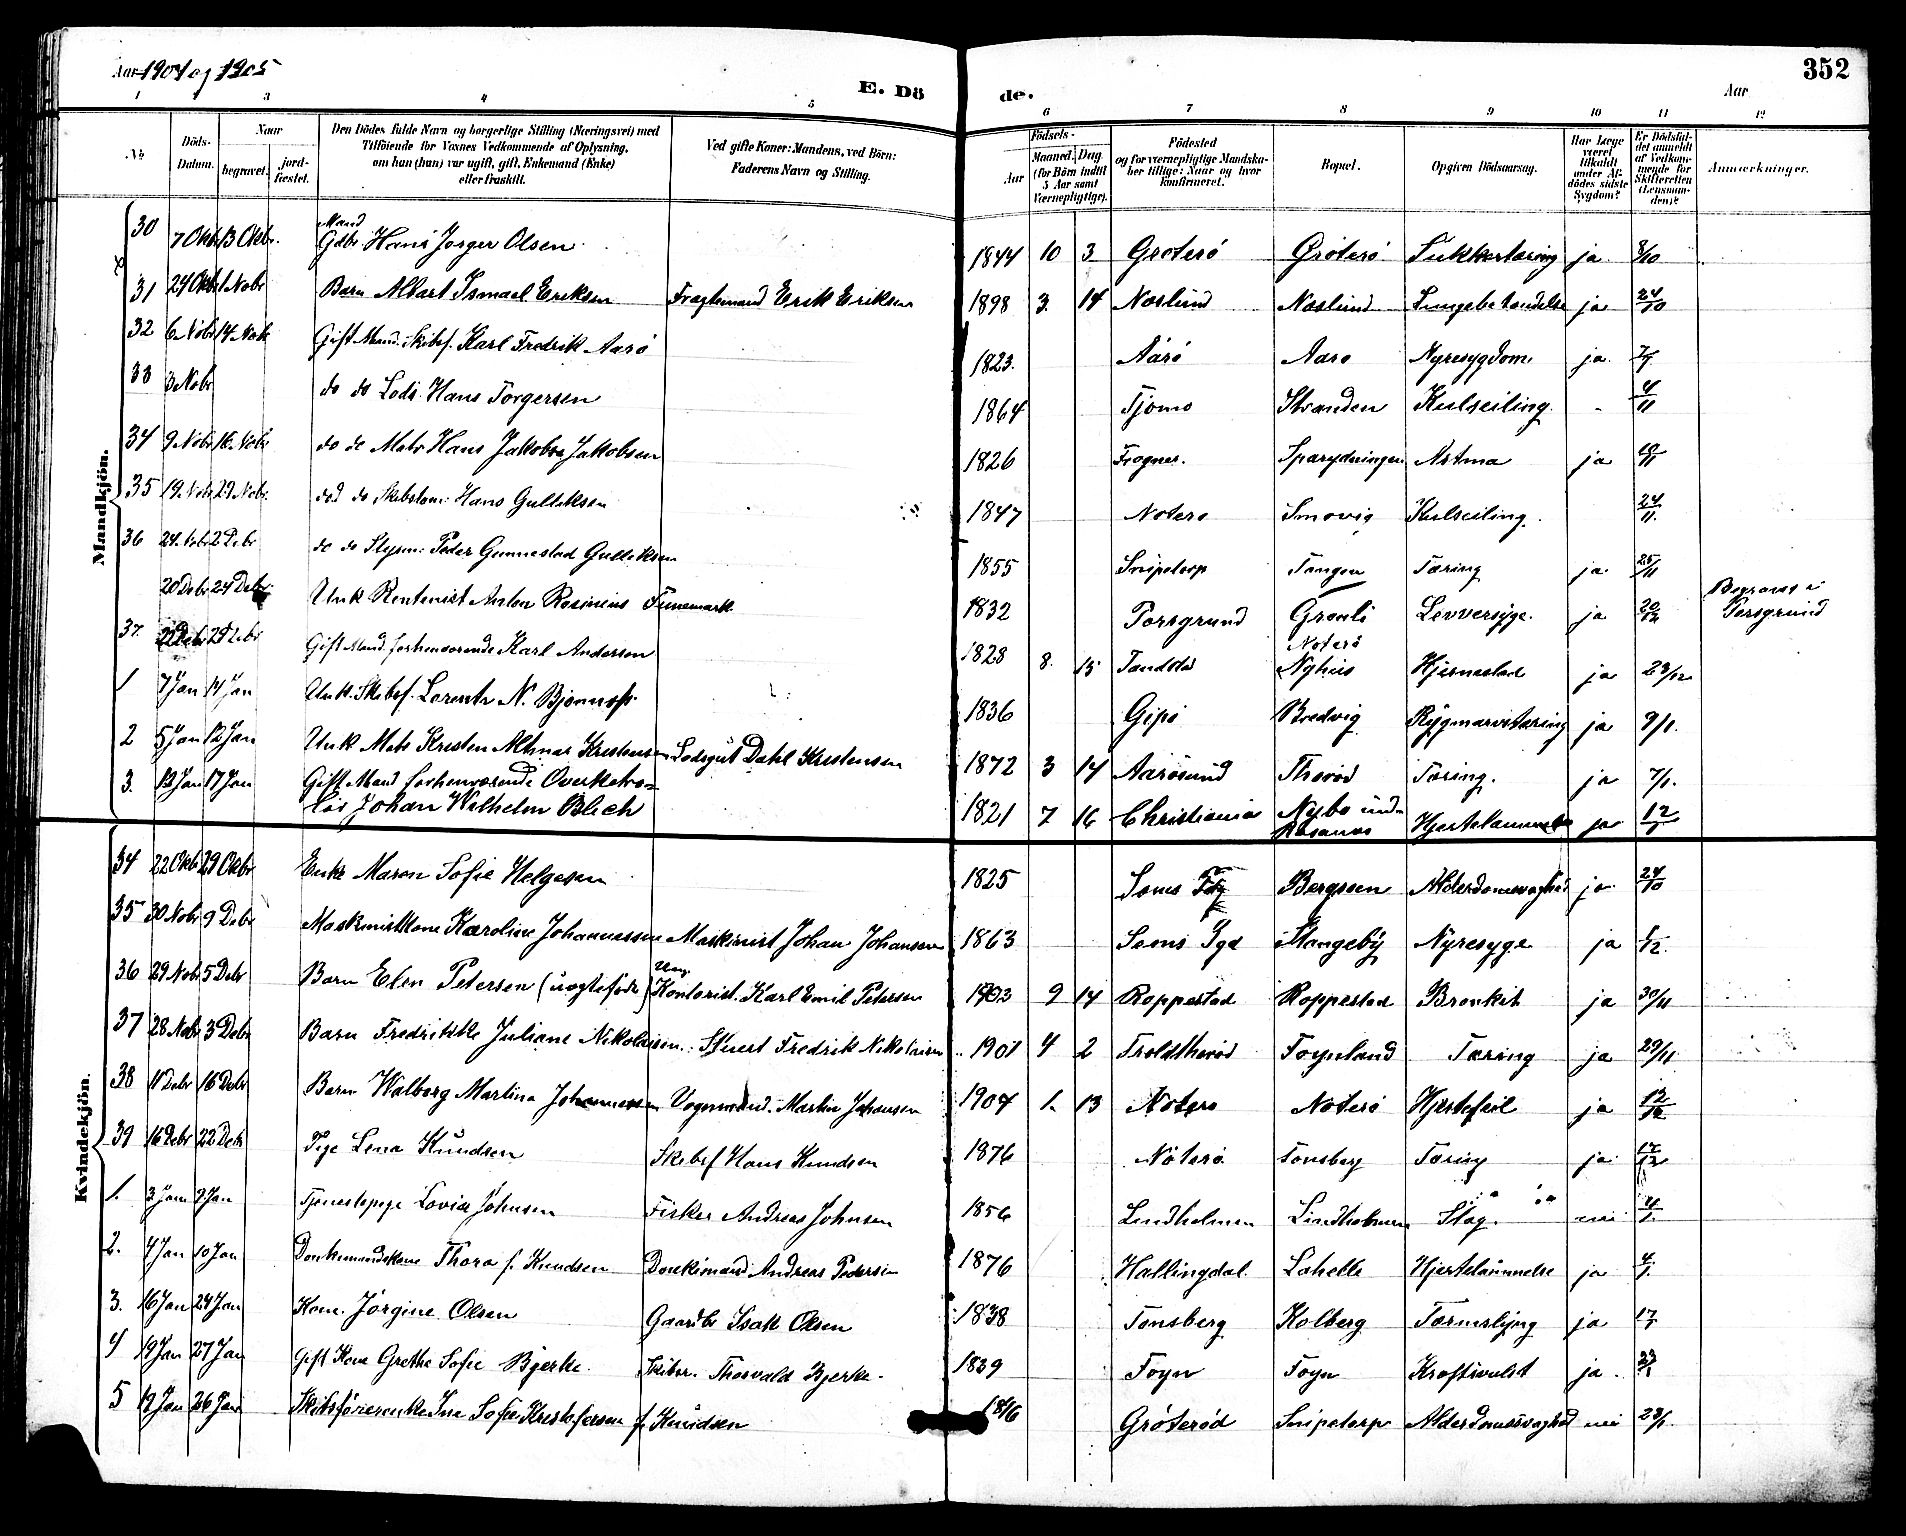 Aar 1904 og 1905
E. Dö
de.
Aar
352
1 2 3 4 5 6 7 8 9 10 11 12
No
Döds-Datum.
Naar
begravet.
jordfæstet.
Den Dödes fulde Navn og borgerlige Stilling (Næringsvei) med Tilföiende for Voxnes Vedkommende af Oplysning, om han (hun) var ugift, gift, Enkemand (Enke) eller fraskilt.
Ved gifte Koner: Mandens, ved Börn: Faderens Navn og Stilling.
Födsels-
Aar
Maaned. Dag (for Börn indtil 5 Aar samt Værnepligtige).
Födested og for værnepligtige Mandskaber tillige: Naar og hvor konfirmeret.
Bopæl.
Opgiven Dödsaarsag.
Har Læge været tilkaldt under Afdödes sidste Sygdom?
Er Dödsfaldet anmeldt af Vedkommende for Skifteretten (Lensmanden)?
Anmærkninger.
Mandkjön.
30 7 Okbr 13 Okbr. Mand Gdbr Hans Jørger Olsen 1844 10 3 Grøterö Gröterö Sukkertæring ja 8/10
31 24 Okbr 1 Nobr Barn Albart Ismael Eriksen Fragtemand Erik Eriksen 1898 3. 14 Næslund Næslund Lungebetændelse ja 24/10
32 6 Nobr 14 Nobr Gift Mand. Skibsf. Karl Fredrik Aarö 1823. Aárö Aarø Nyresygdom ja
33 3 Nobr do do Lods Hans Torgersen 1864 Tjømø Stranden Kulseiling - 4/11
34 9 Nobr 16 Nobr do do Mater Hans Jakobse Jakobsen 1826 Frogner. Astma ja
35 19. Nobr 29 Nobr. do do Skibstøm: Hans Gulliksen 1847 Nøterø Smovig Kulseiling. 24/11.
36 24. Nobr 2 Debr do do Styrm: Peder Gunnestad Gulliksen 1855 Snipetorp Tangen Tæring ja 25/11
20 Debr 24 Debr Unk Rentenist Anton Rasmus Funnemark 1832 Porsgrund Grønli Levversyge ja 20/12 Begravet i Porsgrund
37. 29 Debr Gift Mand. forhenværende Karl Andersen 1828 8. 15 Nøterö Nyhus Hjerneslad ja 23/12
1 7 Jan 14 Jan Unk. Skibsf. Lorents N. Bjønnes 1836 Gipö Bredvig Rygmarvstæring ja 9/1.
2 5 Jan 12 Jan Unk Mats Kristen Altmar Kristensen Lodsgut Dahl Kristensen 1872 3 14 Aarösund Thorød Tæring. ja 7/1.
3. 12 Jan 17 Jan Gift Mand forhenværende Overkøtrolør Johan Wilhelm Blich 1821 7 16 Christiania Nybø und. Rosanes Hjertelammelse ja 12/1
Kvindekjön.
34 22 Okbr 29 Okbr Enke Maren Sofie Helgesen 1825 Sems Bergssen Alderdomssvaghed ja 24/10
35 30 Nobr 9 Debr Maskinistkone Karoline Johannessen Maskinist Johan Johansen 1863 Sems Sgd Stangeby Nyresyge ja 1/12.
36 29 Nobr 5 Debr Barn Elen Petersen (uægtefødt) Ung Kontorist. Karl Emil Petersen 1903 9 14 Roppestad Roppestad Bronkit ja 30/11
37 28 Nobr 3 Debr Barn Fredrikke Juliane Nikolaisen Stuert Fredrik Nikolaisen 1901 4 2 Troldthvröd Foynland Tæring ja 29/11
38 11 Debr 16 Debr Barn Walborg Martine Johannessen Vognmand. Martin Johansen 1904 1. 13 Nøterø Nøterö Hjertefeil ja 12/12
39 16 Debr 22 Debr Pige Lena Knudsen Skibsf Hans Knudsen 1876 Nöterö Tønsberg Tæring ja 17/12
1. 3 Jan 9 Jan Tjenestepige Lovise Johnsen Fisker Andreas Johnsen 1856 Lindholmen Lindholmen Slag. nei 4/1.
2. 4 Jan 10 Jan Donkemandskone Thora f. Knudsen Donkimand Andreas Pedersen 1876 Hallingdal. Lahelle Hjertelammelse ja 4/1.
3. 16 Jan 24 Jan Kone. Jörgine Olsen Gaardbr Isak Olsen 1838 Tønsberg Kolberg Tarmslyng ja 17/1
4 19 Jan 27 Jan Gift Kone Grethe Sofie Bjerke Skibsr. Thorvald Bjerke. 1839 Foyn Foyn Kræftsvulst ja 23/1
5 19 Jan 26 Jan Skibsførerenke Ine Sofie Kristofersen f. Knudsen 1816 Gröteröd Snipetorp Alderdomssvaghed nei 23/1.